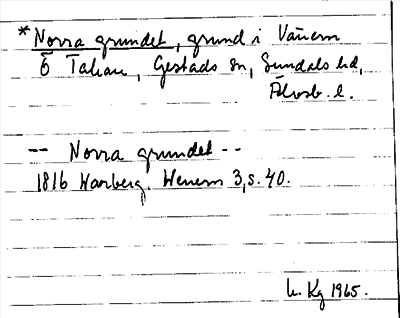 *Norra grundet, grund i Vänern
Ö Takan, Gestads sn, Sundals hd,
Älvsb. l.
-- Norra grundet --
1816 Warberg. Wenern 3, s. 40.
Kg 1965.